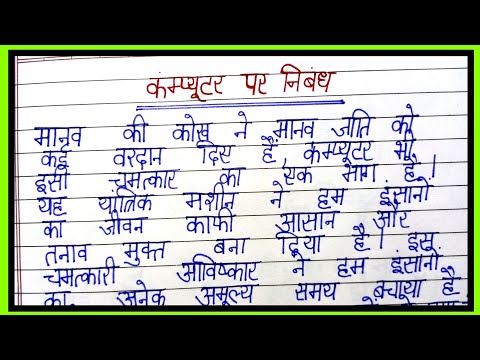 कम्प्यूटर पर निबंध
मानव की कोख ने मानव जाति को
कई वरदान दिए हैं, कम्प्यूटर भी
इसी चमत्कार का एक भाग है।
यह यांत्रिक मशीन ने हम इंसानों
का जीवन काफी आसान और
तनाव मुक्त बना दिया है। इस
चमत्कारी आविष्कार ने हम इंसानों
का अनेक अमूल्य समय बचाया है